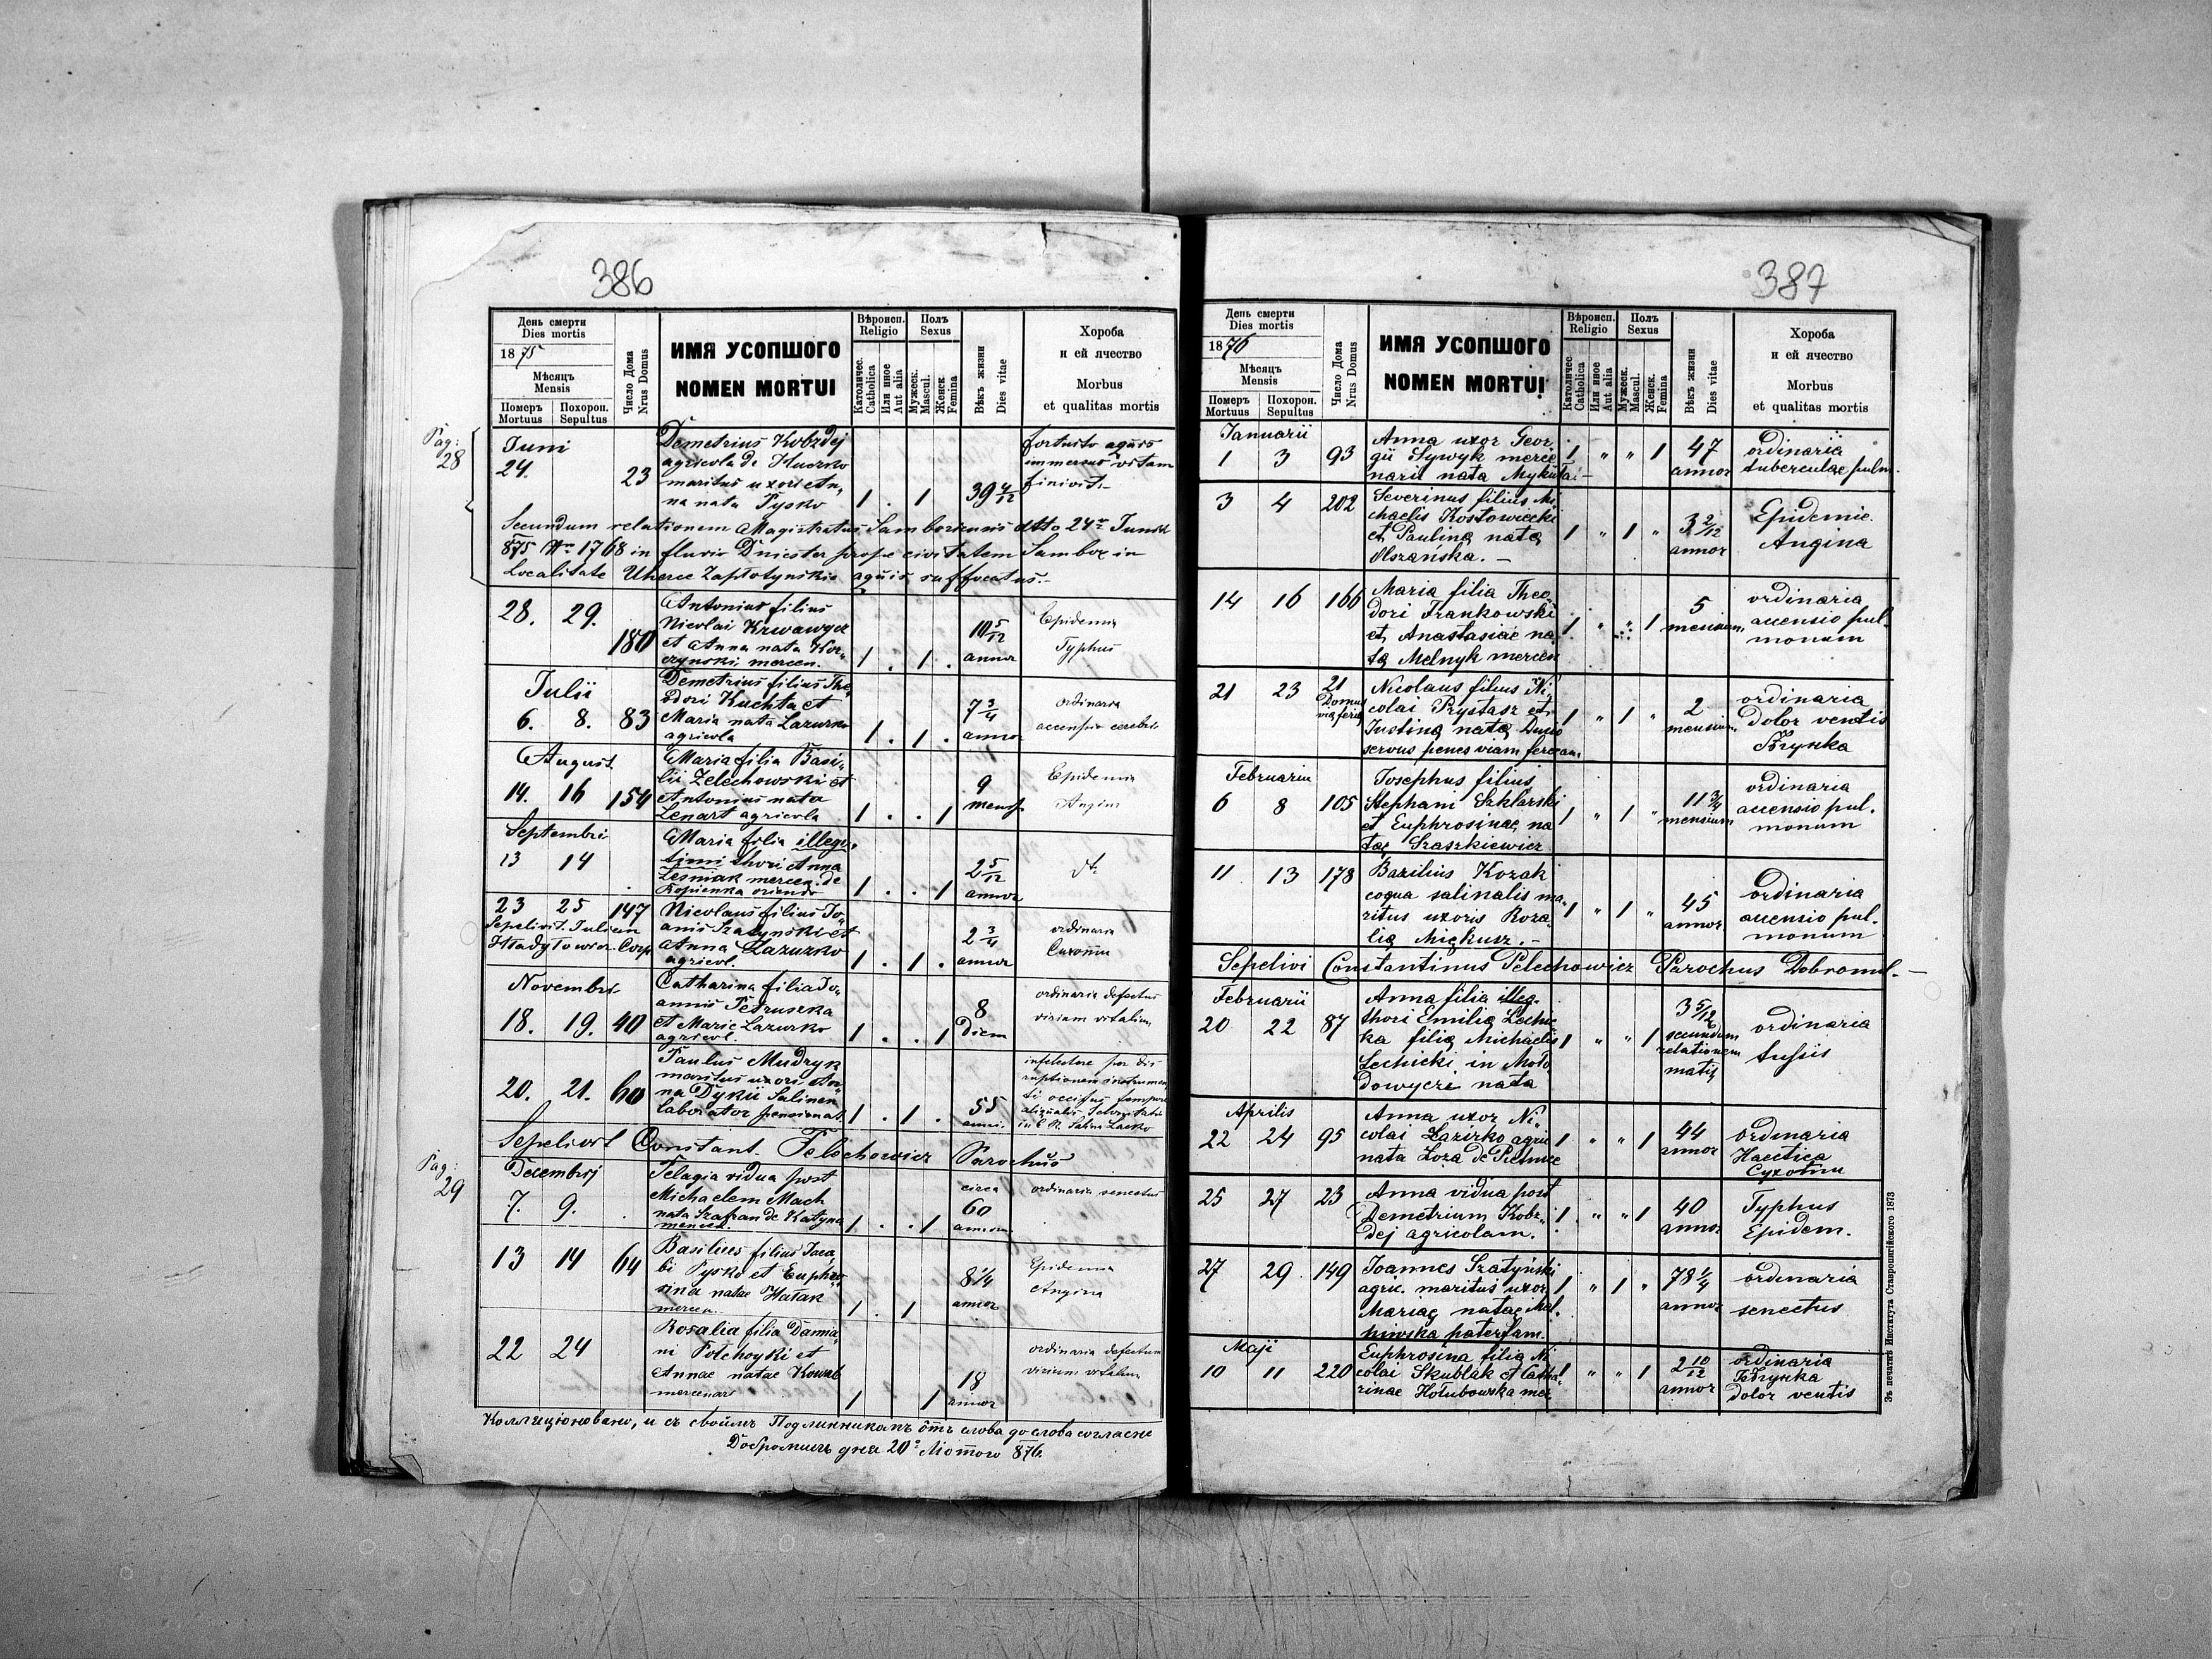 386
День смерти
Dies mortis
1875
Мѣсяцъ
Mensis
Померъ
Mortuus
Похорон.
Sepultus
Число Дома
Nrus Domus
ИМЯ УСОПШОГО
NOMEN MORTUI
Вѣроисп.
Religio
Католичес.
Catholica
Или иное
Aut alia
Полъ
Sexus
Мужеск.
Mascul.
Женск.
Femina
Вѣкъ жизни
Dies vitae
Хороба
и ей ячество
Morbus
et qualitas mortis
Pag: 28
Juni
24. 23
Demetrius Kobzdej
agricola de
maritus uxori An-
na nata Pysko
1 . 1 39 4/12
fortuito aquis
immersus vitam
finivit.
Secundum relationem Magistratus Samboriensis dtto 24 Junii
875 Nro 1768 in fluvio Dniester prope civitatem Sambor in
Localitate Uherce Zapłotynskie aquis suffocatus.
28. 29. 180
Antonius filius
Nicolai
et Anna nata Kor-
czynski mercen.
1 . 1 . 10 5/12
annor
Epidemia
Typhus
Julii
6. 8. 83
Demetrius filius The-
odori Kuchta et
Maria nata Lazurko
agricola
1 . 1 . 7 3/4
annor
ordinaria
accensio cerebri
August
14. 16 154
Maria filia Basi-
lii Zelechowski et
Antonina nata
Lenart agricola
1 . . 1 9
mens.
Epidemia
Angina
Septembri
13 14
Maria filia illegi-
timi thori Anna
Lesniak mercen. de
Ropienka oriendo
1 . . 1 2 5/12
annor
23 25 147
Sepelivit Julian
Nicolaus filius Jo-
anis Szatynski et
Anna Lazurko
agricol.
1 . 1 . 2 3/4
annor
ordinaria
Novembri
18. 19. 40
Catharina filia Jo-
annis Petruszka
et Marie Lazurko
agricol.
1 . . 1 8
Diem
ordinaria defectus
virium vitalium
20. 21. 60
Paulus Mudryk
maritus uxori An-
na Dykij Salinen
laborator pensionat.
1 . 1 . 55
anni.
Sepelivit Constant. Pelechowicz Parochus
Pag: 29
Decembrj
7. 9.
Pelagia vidua post
Michaelem Mach
nata Szafran de Katyna
mercen.
1 . . 1 circa
60
annor
ordinaria senectus
13 14 64
Basilius filius Jaco-
bi Pysko et Euphro-
sina natae Hatak
mercen.
1 . 1 8 1/4
annor
Epidemia
Angina
22 24
Rosalia filia Damia-
ni et
Annae natae Kowal
mercenar
1 1 18
annor
ordinaria defectum
virium vitalium
Колляціоновано, и съ своимъ Подлинникомъ отъ слова до слова согласне
Добромиль дня 20 Лютого 876.
387
День смерти
Dies mortis
1876
Мѣсяцъ
Mensis
Померъ
Mortuus
Похорон.
Sepultus
Число Дома
Nrus Domus
ИМЯ УСОПШОГО
NOMEN MORTUI
Вѣроисп.
Religio
Католичес.
Catholica
Или иное
Aut alia
Полъ
Sexus
Мужеск.
Mascul.
Женск.
Femina
Вѣкъ жизни
Dies vitae
Хороба
и ей ячество
Morbus
et qualitas mortis
Januarii
1 3 93
Anna uxor Geor-
gii Sywyk merce-
narii nata Mykita
1 " " 1 47
annor
ordinaria
tuberculae pulm.
3 4 202
Severinus filius Mi-
chaelis Kostowiecki
et Pauliną natą
Olszańska.
1 " 1 " 3 2/12
annor
Epidemic.
Angina
14 16 166
Maria filia Theo-
dori Frankowski
et Anastasiae na-
tą Melnyk mercen
1 " " 1 5
mensium.
ordinaria
accensio pul-
monum
21 23 21
Domus
via ferea
Nicolaus filius Ni-
colai Prystasz et
Justiną natą
servus penes viam feream
1 " 1 " 2
mensium.
ordinaria
dolor ventis
Februariu
6 8 105
Josephus filius
Stephani Szklarski
et Euphrosinae na-
tae Szaszkiewicz
1 " 1 " 11 3/4
mensium
ordinaria
accensio pul-
monum
11 13 178
Bazilius Kozak
coqua salinalis ma-
ritus uxoris Roza-
lią Miękusz.
1 " 1 " 45
annor
ordinaria
accensio pul-
monum
Sepelivi Constantinus Pelechowicz Parochus Dobromil.
Februarii
20 22 87
Anna filia illeg.
thori Emilią Lechic-
ka filią Michaelis
Lechicki in Moło-
dowycze nata
1 " " 1 3 5/12
secundum
relationem
matis
ordinaria
tussis
Aprilis
22 24 95
Anna uxor Ni-
colai Lazirko agric
nata Łoza de
1 " " 1 44
annor
ordinaria
25 27 23
Anna vidua post
Demetrium Kobz-
dej agricolam.
1 " " 1 40
annor
Typhus
Epidem.
27 29 149
Joannes Szatyński
agric. maritus uxor.
Mariae natae Mal-
kiwska paterfam.
1 " 1 " 78 1/4
annor
ordinaria
senectus
Maji
10 11 220
Euphrosina filia Ni-
colai Skublak et Catha-
rinae Hołubowska mer.
1 " " 1 2 10/12
annor
ordinaria
dolor ventis
Зъ печатнѣ Института Ставропигійского 1873